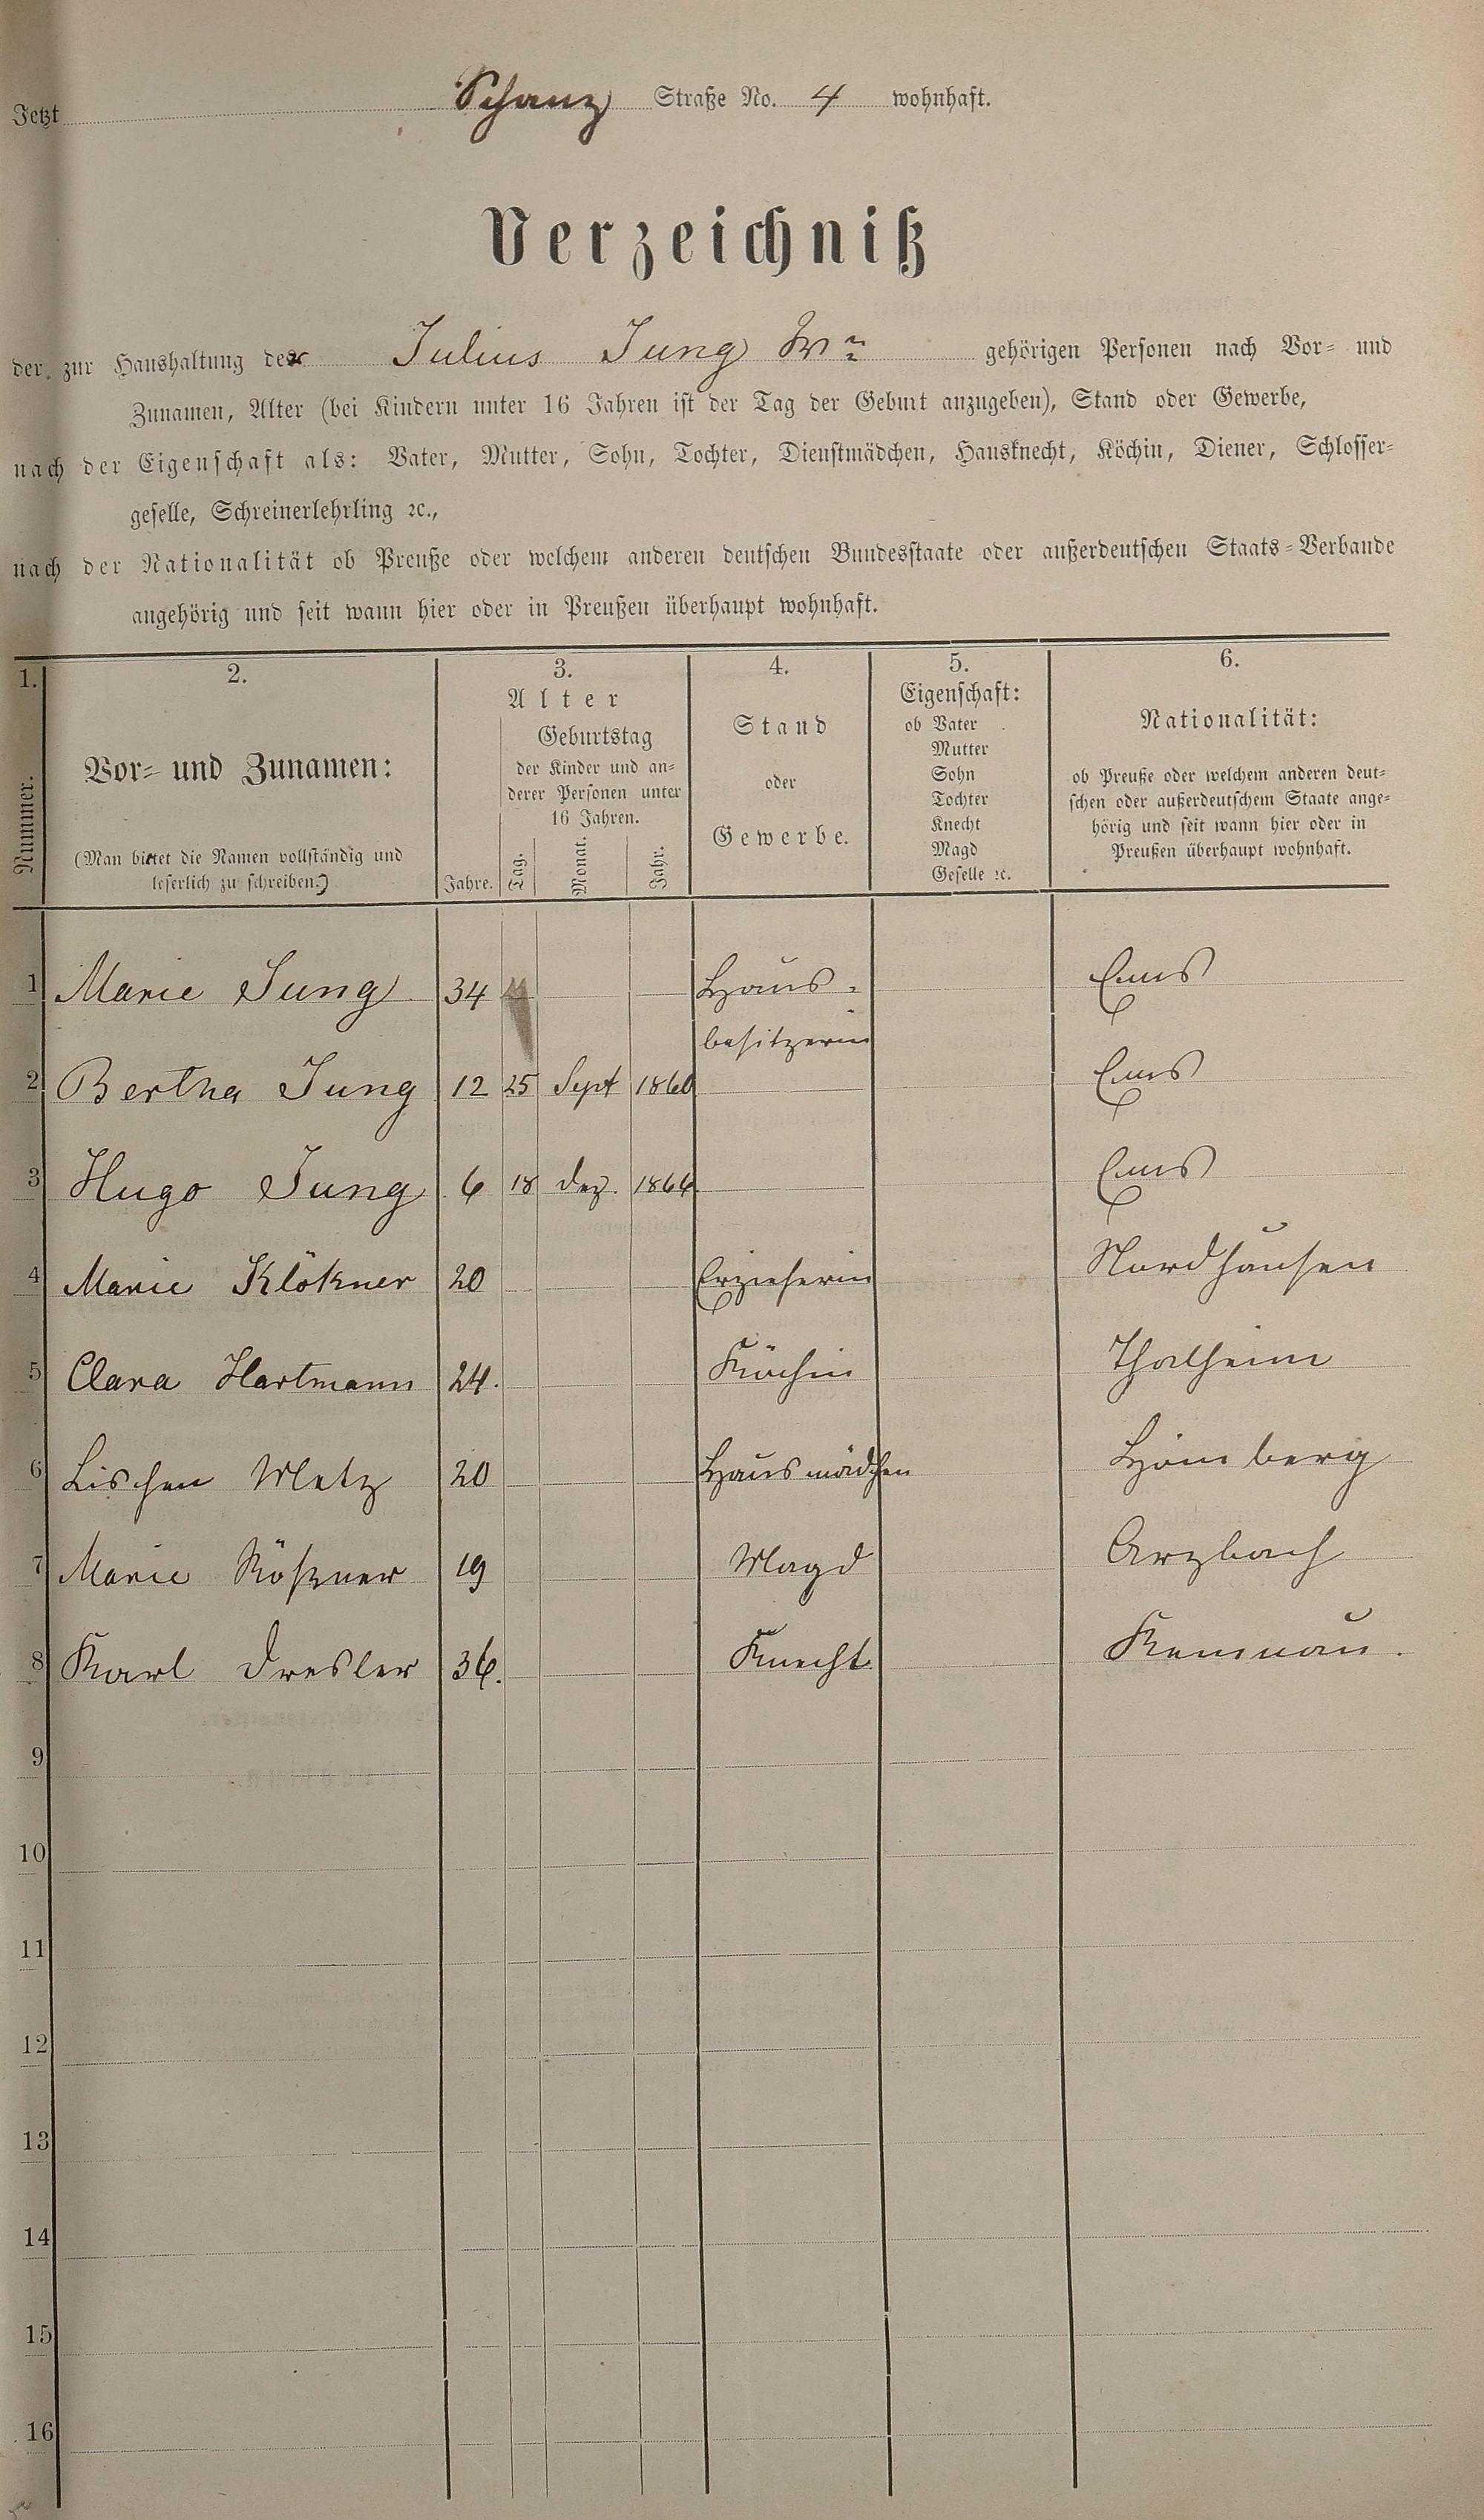 Jetzt Schanz Straße No. 4 wohnhaft.
Verzeichniß
der zur Haushaltung der Julius Jung Ww gehörigen Personen nach Vor- und
Zunamen, Alter (bei Kindern unter 16 Jahren ist der Tag der Geburt anzugeben), Stand oder Gewerbe,
nach der Eigenschaft als: Vater, Mutter, Sohn, Tochter, Dienstmädchen, Hausknecht, Köchin, Diener, Schlosser-
geselle, Schreinerlehrling ꝛc.,
nach der Nationalität ob Preuße oder welchem anderen deutschen Bundesstaate oder außerdeutschen Staats-Verbande
angehörig und seit wann hier oder in Preußen überhaupt wohnhaft.
1. 2. 3. 4. 5. 6.
Nummer.
Vor- und Zunamen:
(Man bittet die Namen vollständig und
leserlich zu schreiben.)
Alter
Geburtstag
der Kinder und an-
derer Personen unter
16 Jahren.
Jahre. Tag. Monat. Jahr.
Stand
oder
Gewerbe.
Eigenschaft:
ob Vater
Mutter
Sohn
Tochter
Knecht
Magd
Geselle ꝛc.
Nationalität:
ob Preuße oder welchem anderen deut-
schen oder außerdeutschem Staate ange-
hörig und seit wann hier oder in
Preußen überhaupt wohnhaft.
1 Marie Jung 34 Haus- Ems
besitzerin
2 Bertha Jung 12 25 Sept 1860 Ems
3 Hugo Jung 6 18 Dez. 1866 Ems
4 Marie Klökner 20 Erzieherin Nordhausen
5 Clara Hartmann 24. Köchin Thalheim
6 Lischen Metz 20 Hausmädchen Hömberg
7 Marie 19 Magd Arzbach
8 Karl Dresler 36. Knecht Kemnau.
9
10
11
12
13
14
15
16